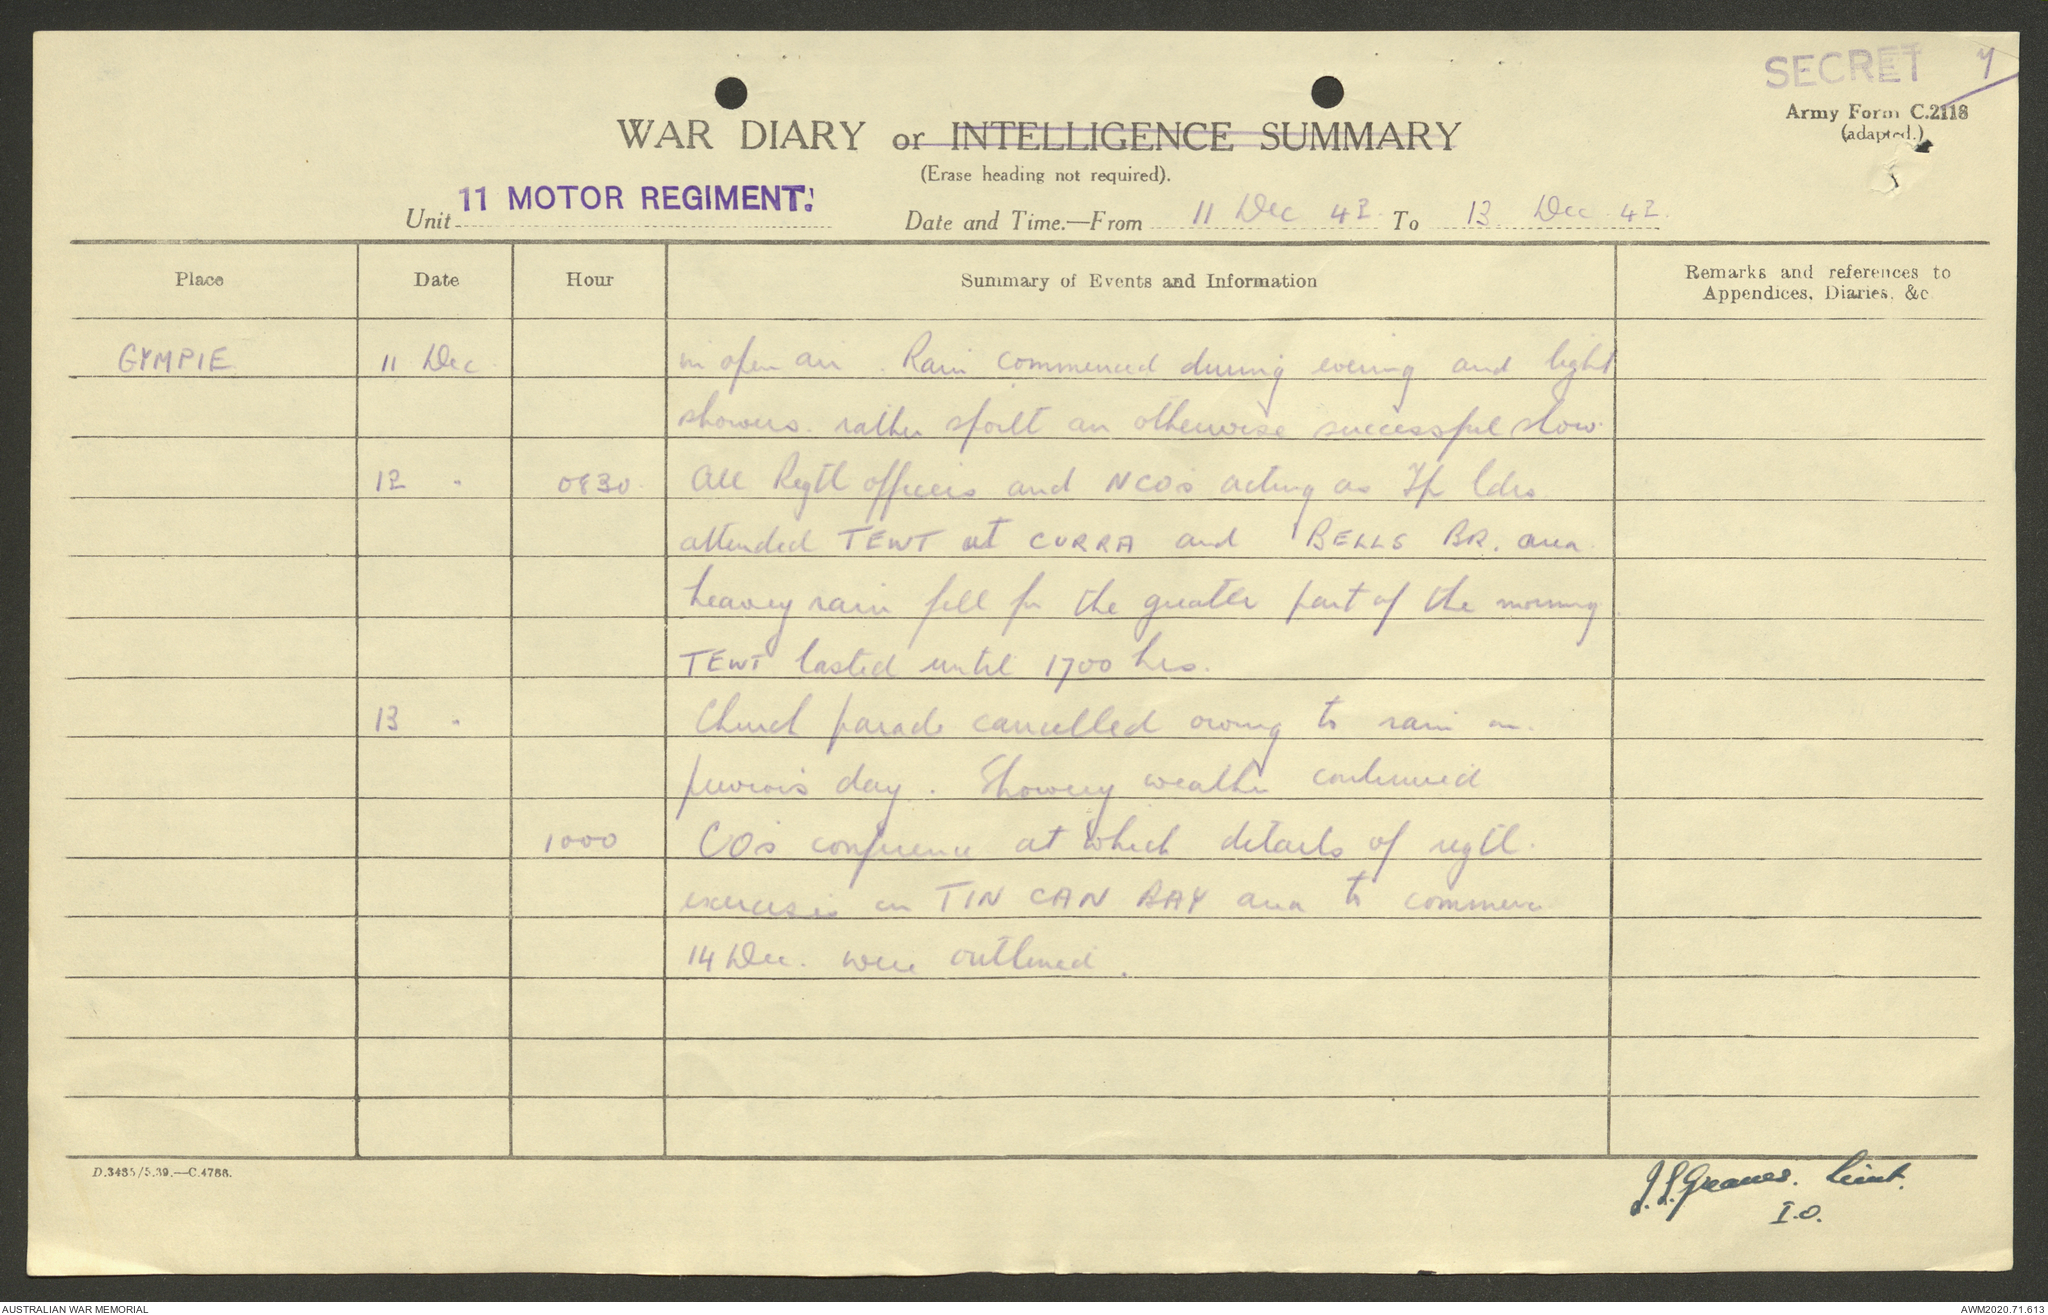 SECRET 7
Army Form C.2118
(adapted.)
WAR DIARY or INTELLIGENCE SUMMARY
(Erase heading not required).
Unit 11 MOTOR REGIMENT. Date and Time.—From 11 Dec 42. To 13 Dec 42.
Place Date Hour Summary of Events and Information Remarks and references to
Appendices, Diaries, &c
GYMPIE 11 Dec. in open air. Rain commenced during evening and light
showers. rather spoilt an otherwise successful show.
12 " 0830 All Regtl officers and NCOs acting as Tp ldrs
attended TEWT at CURRA and BELLS BR. area.
heavey rain fell for the greater part of the morning.
TEWT lasted until 1700 hrs.
13 " Church parade cancelled owing to rain on
previous day. Showery weather continued
1000 CO's conference at which details of regtl.
exercises in TIN CAN BAY area to commence
14 Dec. were outlined.
D.3485/5.39.—C.4788.
J.L. Greaves. Lieut.
I.O.
AUSTRALIAN WAR MEMORIAL AWM2020.71.613